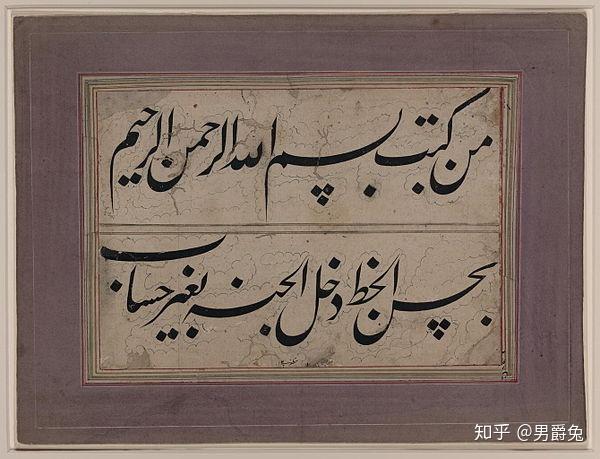 من كتب بسم الله الرحمن الرحيم
بحسن الخط دخل الجنة بغير حساب
知乎 @男爵兔